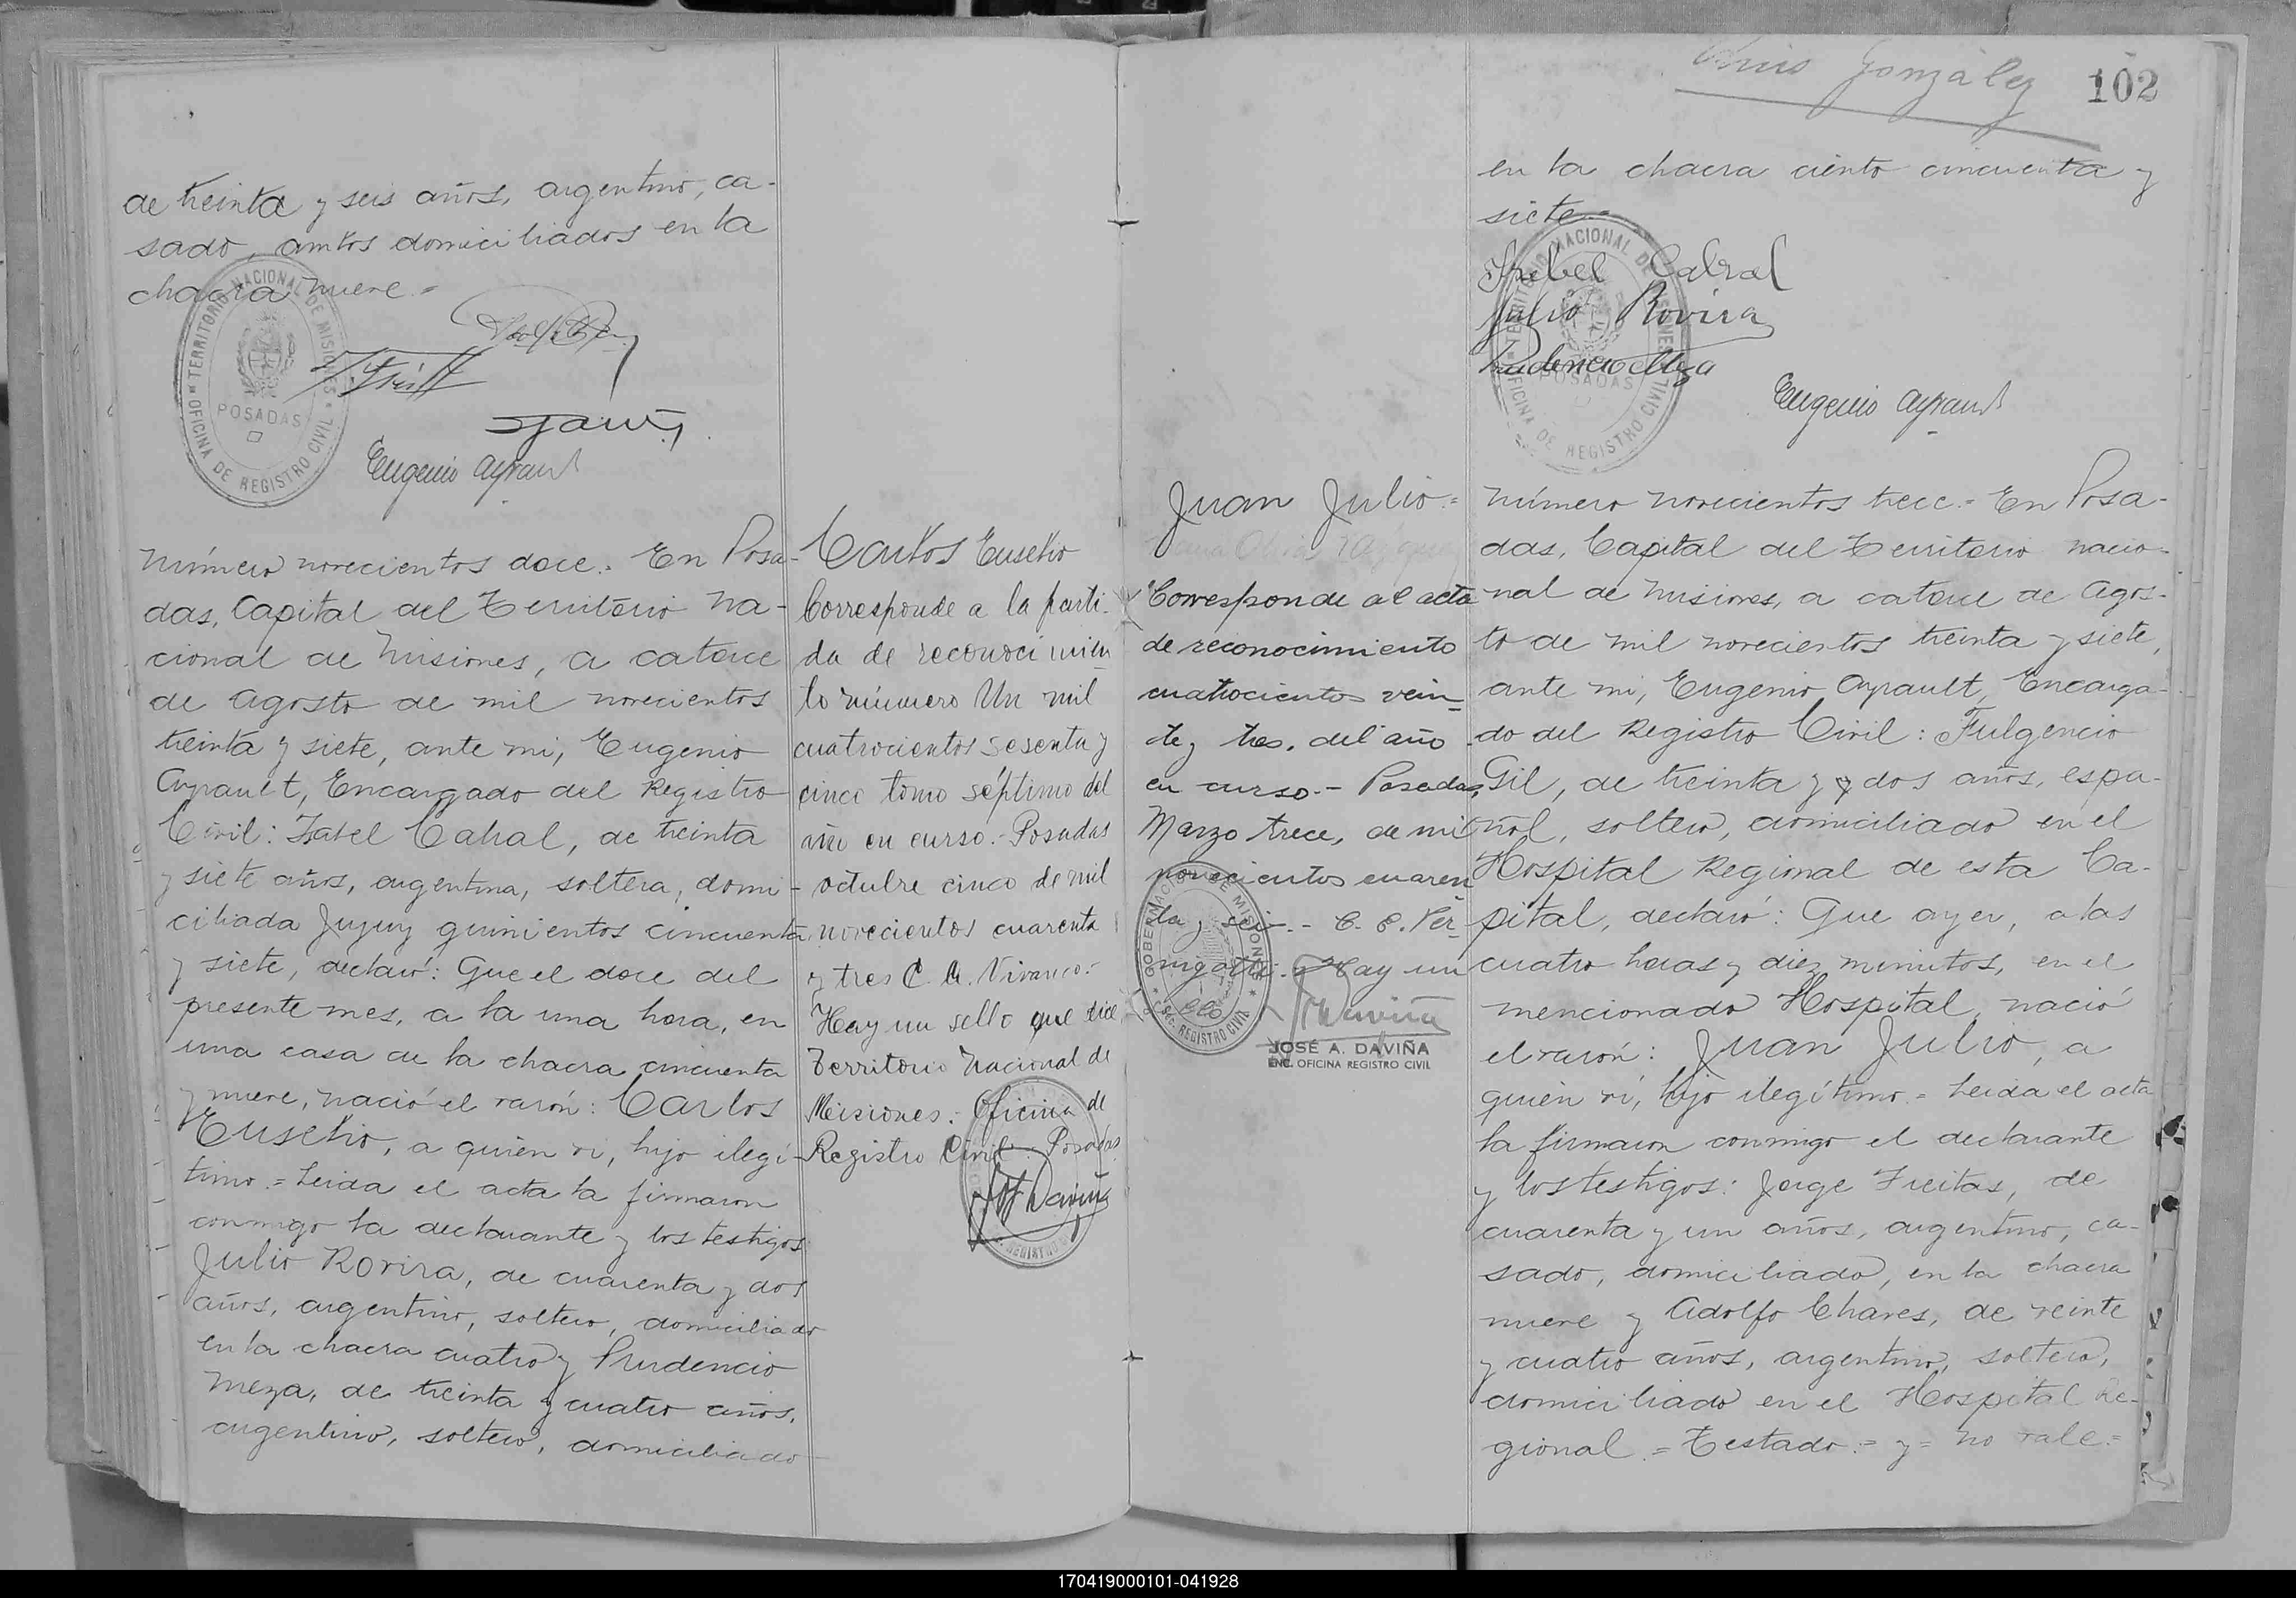 de treinta y seis años, argentino, ca-
sado, ambos domiciliados en la
chacra nueve.=
TERRITORIO NACIONAL DE MISIONES
POSADAS
OFICINA DE REGISTRO CIVIL
Eugenio Ayrault
Número novecientos doce.= En Posa-
das, Capital del Territorio Na-
cional de Misiones, a catorce
de Agosto de mil novecientos
treinta y siete, ante mi, Eugenio
Ayrault, Encargado del Registro
Civil: Isabel Cabral, de treinta
y siete años, argentina, soltera, domi-
ciliada Jujuy quinientos cincuenta
y siete, declaró: Que el doce del
presente mes, a la una hora, en
una casa de la chacra cincuenta
y nueve, nació el varón: Carlos
Eusebio, a quién vi, hijo ilegí-
timo.= Leida el acta la firmaron
conmigo la declarante y los testigos:
Julio Rovira, de cuarenta y dos
años, argentino, soltero, domiciliado
en la chacra cuatro y Prudencio
Meza, de treinta y cuatro años,
argentino, soltero, domiciliado
Carlos Eusebio
Corresponde a la parti-
da de reconocimien
to número Un mil
cuatrocientos sesenta y
cinco tomo séptimo del
año en curso.- Posadas
octubre cinco de mil
novecientos cuarenta
y tres C. A. Vivanco.-
Hay un sello que dice
Territorio Nacional de
Misiones.- Oficina de
Registro Civil- Posadas
REGISTRO
Luis González
102
en la chacra ciento cincuenta y
siete.=
TERRITORIO NACIONAL DE MISIONES
POSADAS
OFICINA DE REGISTRO CIVIL
Isabel Cabral
Julio Rovira
Prudencio Meza
Eugenio Ayrault
Juan Julio.=
Corresponde al acta
de reconocimiento
cuatrocientos vein
te y tres, del año
en curso.- Posadas,
Marzo trece, de mil
novecientos cuaren
ta y seis.- C. E. Per-
nigotti.- Hay un
sello
GOBERNACION DE MISIONES
Sec. REGISTRO CIVIL
JOSÉ A. DAVIÑA
ENC. OFICINA REGISTRO CIVIL
Número novecientos trece.= En Posa-
das, Capital del Territorio nacio-
nal de Misiones, a catorce de Agos-
to de mil novecientos treinta y siete,
ante mi, Eugenio Ayrault, Encarga-
do del Registro Civil: Fulgencio
Gil, de treinta y y dos años, espa-
ñol, soltero, domiciliado en el
Hospital Regional de esta Ca-
pital, declaró: Que ayer, a las
cuatro horas y diez minutos, en el
mencionado Hospital, nació
el varón: Juan Julio, a
quién vi, hijo ilegítimo.= Leida el acta
la firmaron conmigo el declarante
y los testigos: Jorge Freitas, de
cuarenta y un años, argentino, ca-
sado, domiciliado, en la chacra
nueve y Adolfo Chaves, de veinte
y cuatro años, argentino, soltero,
domiciliado en el Hospital Re-
gional.= Testado:= y= no vale.=
170419000101-041928